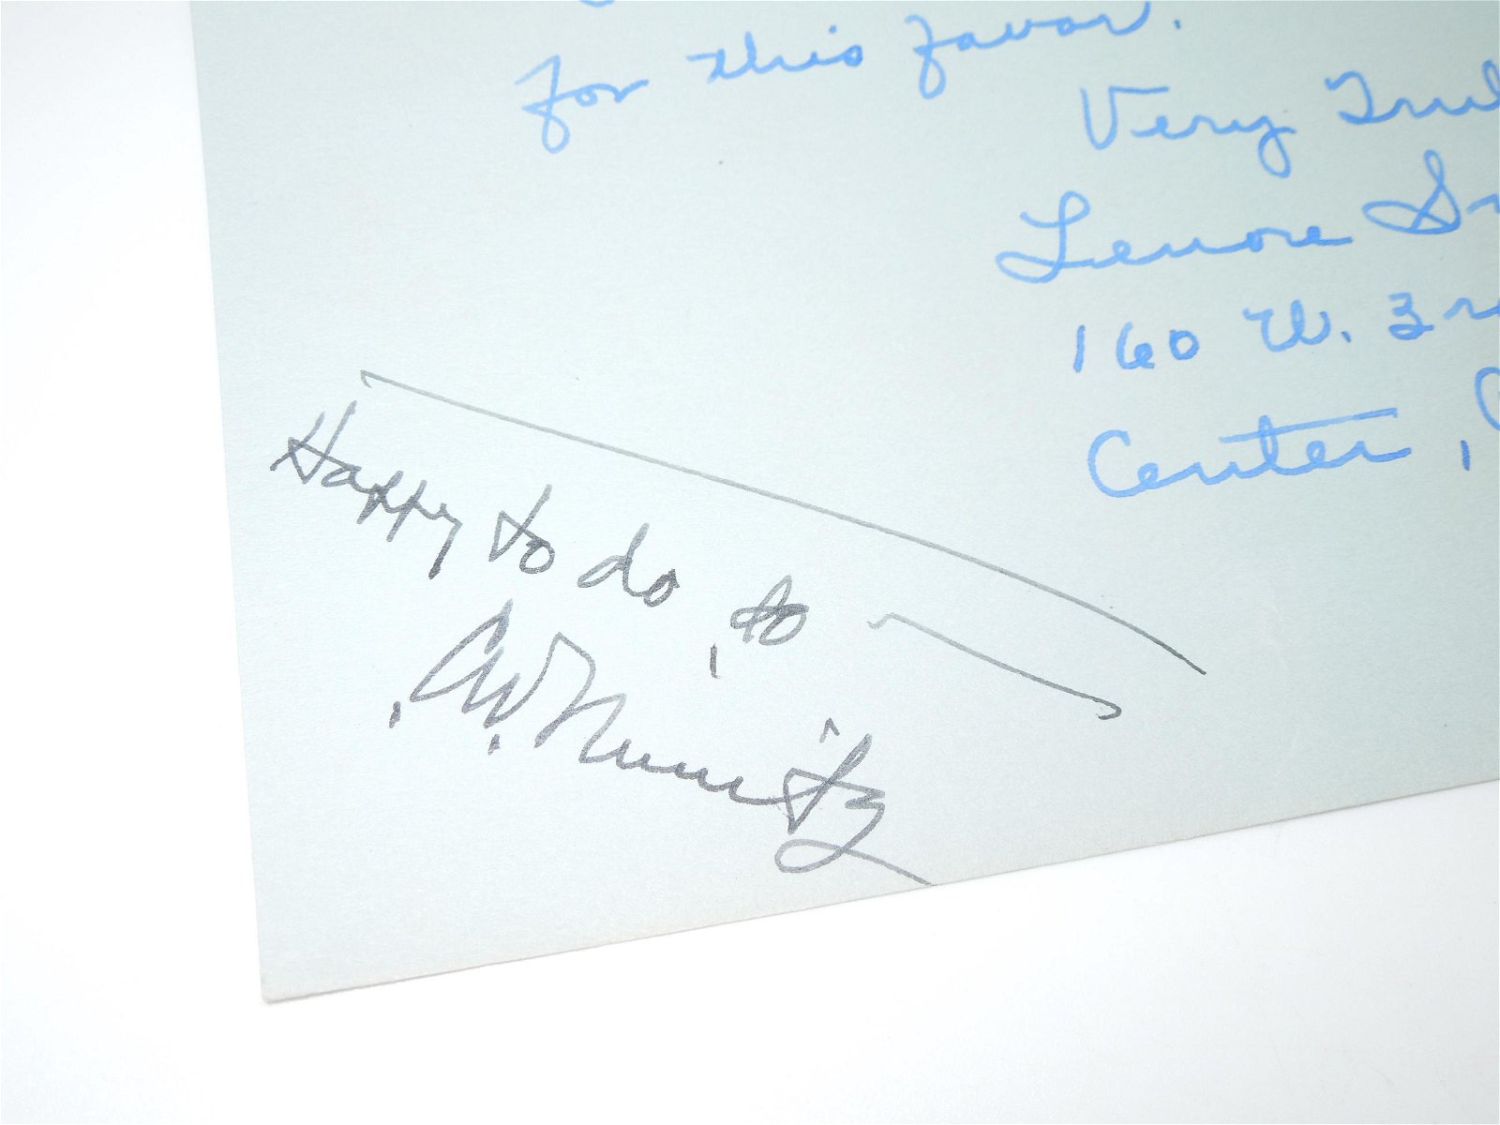 for this favor.
Very Trul
Lenore Sn
160 W. 3r
Center,
Happy to do, to
C.W. Nimitz